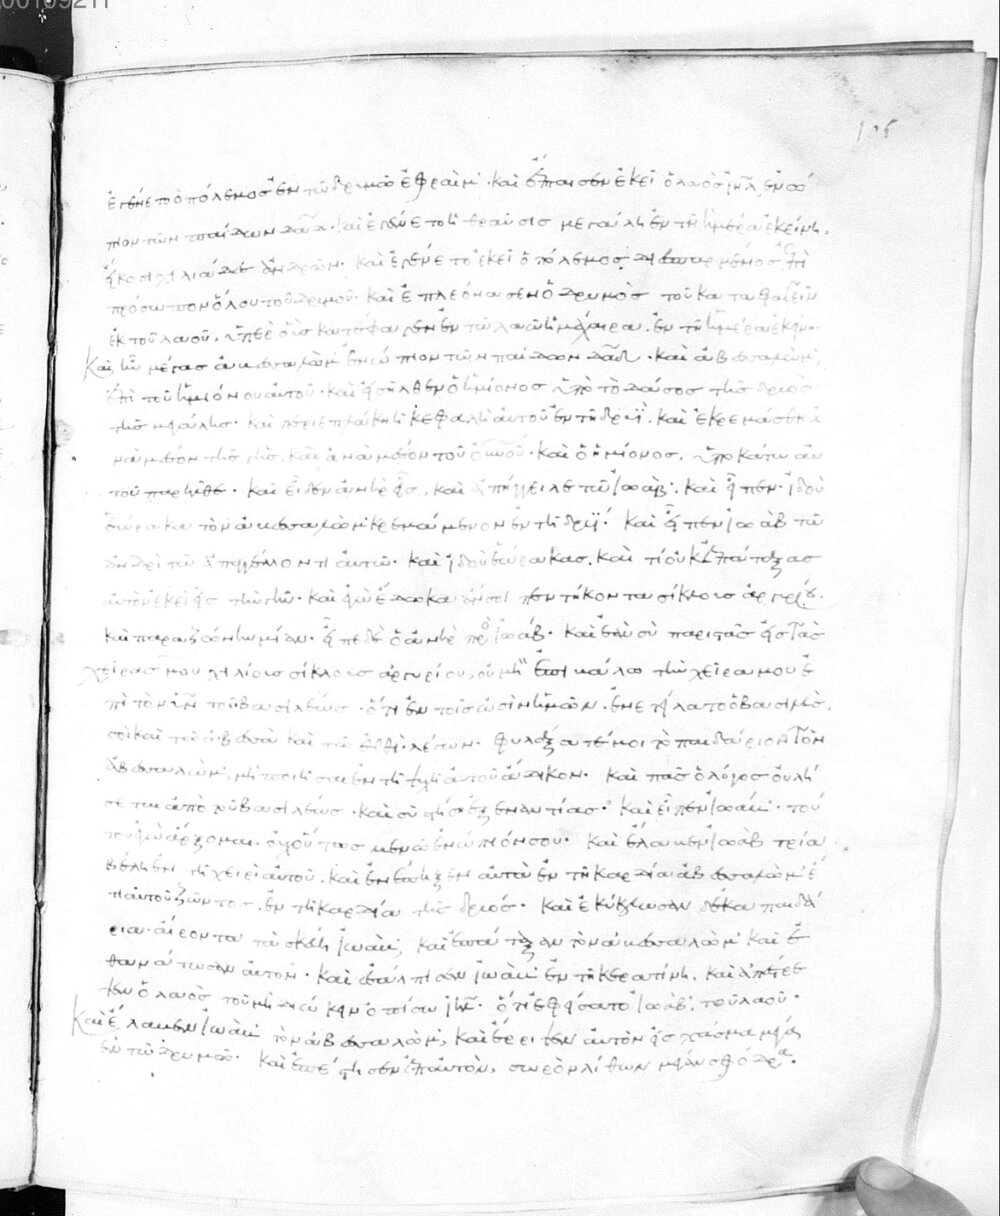 ἐγένετο ὁ πόλεμος ἐν τῶ δρυμῶ ἐφραὶμ· καὶ ἔπταισεν ἐκεῖ ὁ λαὸς ἰηλ ἐνώ
πιον τῶν παίδων δαδ· καὶ ἐγένετο ἡ θραῦσις μεγάλη ἐν τῆ ἡμέρα ἐκείνη,
εἴκοσι χιλιάδες ἀνδρῶν· καὶ ἐγένετο ἐκεῖ ὁ πόλεμος διεσπαρμένος ἐπὶ
πρόσωπον ὅλου τοῦ δρυμοῦ· καὶ ἐπλεόνασεν ὁ δρυμὸς τοῦ καταφαγεῖν
ἐκ τοῦ λαοῦ, ὑπὲρ οὓς κατέφαγεν ἐν τῶ λαῶ ἡ μάχαιρα ἐν τῆ ἡμέρα ἐκείνη·
Καὶ ἦν μέγας ἀβεσσαλὼμ ἐνώπιον τῶν παίδων δαδ· καὶ ἀβεσσαλὼμ,
ἐπὶ τοῦ ἡμιόνου αὐτοῦ· καὶ εἰσῆλθεν ὁ ἡμίονος ὑπὸ τὸ δάσος τῆς δρυὸς
τῆς μεγάλης· καὶ περιεπλάκη ἡ κεφαλὴ αὐτοῦ ἐν τῆ δρυῒ· καὶ ἐκρεμάσθη ἀ
ναμέσον τῆς γῆς, καὶ ἀναμέσον τοῦ οὐνοῦ· καὶ ὁ ἡμίονος, ὑποκάτω αὐ
τοῦ παρῆλθε· καὶ εἶδεν ἀνὴρ εἷς, καὶ ἀπήγγειλε τῶ ἰωάβ· καὶ εἶπεν· ἰδοὺ
ἑώρακα τὸν ἀβεσσαλὼμ κρεμάμενον ἐν τῆ δρυῒ· καὶ εἶπεν ἰωὰβ τῶ
ἀνδρὶ τῶ ἀπαγγέλλοντι αὐτῶ· καὶ ἰδοὺ ἑώρακας, καὶ τί οὐκ ἐπάταξας
αὐτὸν ἐκεῖ εἰς τὴν γῆν· καὶ ἐγὼ ἔδωκα ἄν σοι πεντήκοντα σίκλους ἀργυρίου·
καὶ παραζώνην μίαν· εἶπε δὲ ὁ ἀνὴρ πρὸ ἰωάβ· καὶ ἐὰν σὺ παριστᾶς εἰς τὰς
χεῖρας μου χιλίους σίκλους ἀργυρίου, οὐ μὴ ἐπιβάλω τὴν χεῖρα μου ἐ
πὶ τὸν υἱὸν τοῦ βασιλέως· ὅτι ἐν τοῖς ὠσὶν ἡμῶν, ἐνετείλατο ὁ βασιλεὺς,
σοὶ καὶ τῶ ἀβεσσὰ καὶ τῶ ἐθθὶ λέγων· φυλάξατέ μοι τὸ παιδάριον τὸν
ἀβεσσαλὼμ, μὴ ποιῆσαι ἐν τῆ ψυχῆ αὐτοῦ ἄδικον· καὶ πᾶς ὁ λόγος οὐ λή
σεται ἀπὸ τοῦ βασιλέως· καὶ σὺ στήση ἐξεναντίας· καὶ εἶπεν ἰωάβ· τού
το ἐγὼ ἄρξομαι, οὐχ οὕτως μενῶ ἐνώπιόν σου· καὶ ἔλαβεν ἰωὰβ τρία
βέλη ἐν τῆ χειρὶ αὐτοῦ, καὶ ἐνέπηξεν αὐτὰ ἐν τῆ καρδία ἀβεσσαλὼμ ἔ
τι αὐτοῦ ζῶντος ἐν τῆ καρδία τῆς δρυός· καὶ ἐκύκλωσαν δέκα παιδά
ρια αἴροντα τὰ σκεύη ἰωὰβ, καὶ ἐπάταξαν τὸν ἀβεσσαλὼμ καὶ ἐ
θανάτωσαν αὐτόν· καὶ ἐσάλπισεν ἰωὰβ ἐν τῆ κερατίνη, καὶ ἀπέστρε
ψεν ὁ λαὸς τοῦ μὴ διώκειν ὀπίσω ἰηλ· ὅτι ἐφείσατο ἰωὰβ τοῦ λαοῦ·
Καὶ ἔλαβεν ἰωὰβ τὸν ἀβεσσαλὼμ, καὶ ἔρριψεν αὐτὸν εἰς χάσμα μέγα
ἐν τῶ δρυμῶ· καὶ ἐπέστησεν ἐπ' αὐτὸν, σωρὸν λίθων μέγαν σφόδρα·